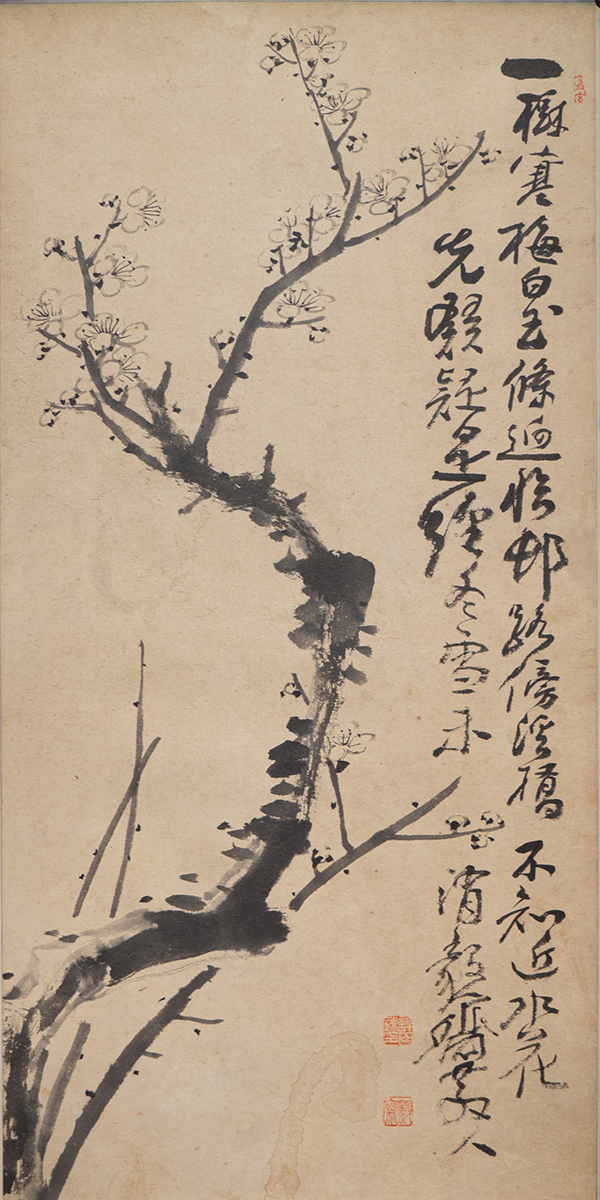 一樹寒梅白玉條迥臨邨路傍溪橋不知近水花
先發疑是經冬雪未消 人